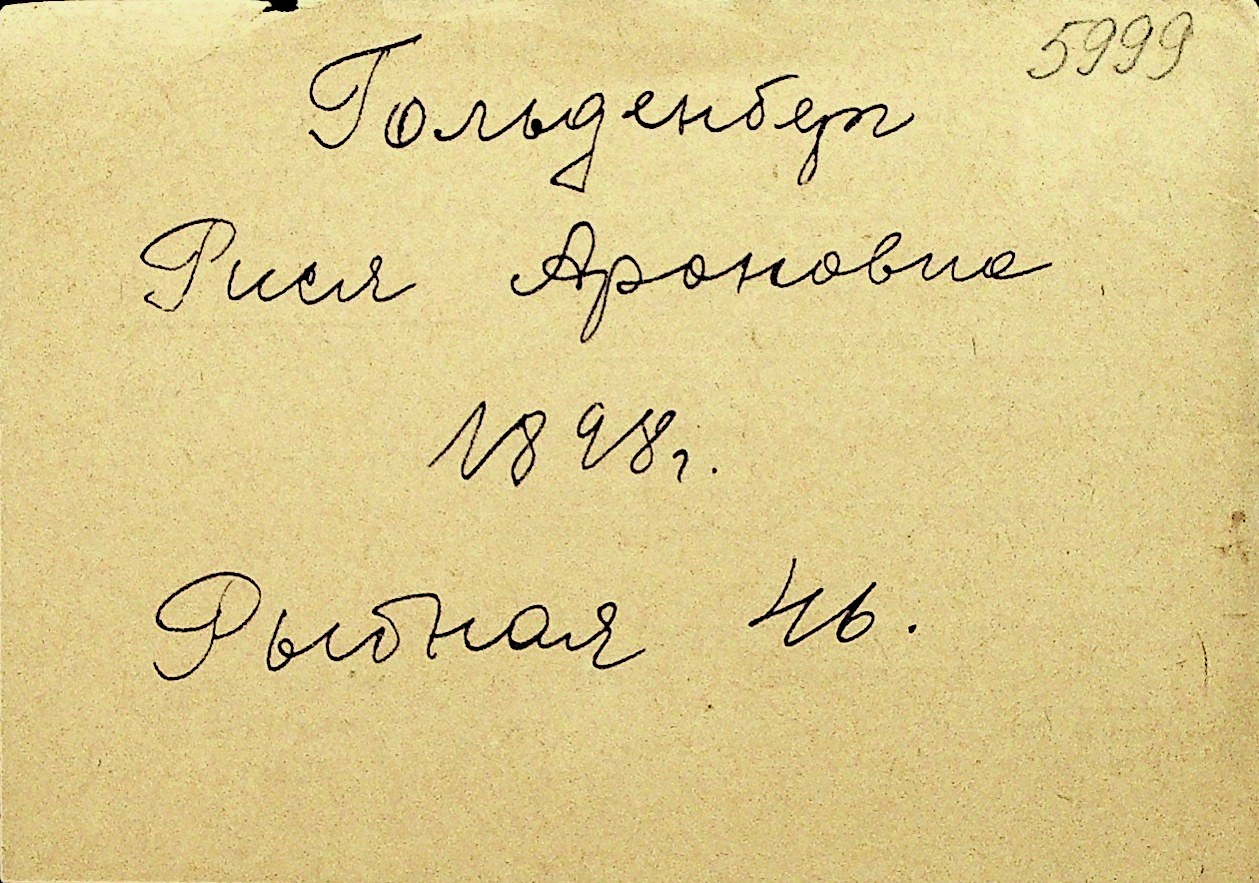 5999
Гольденберг
Рися Ароновна
1898г.
Рыбная 46.